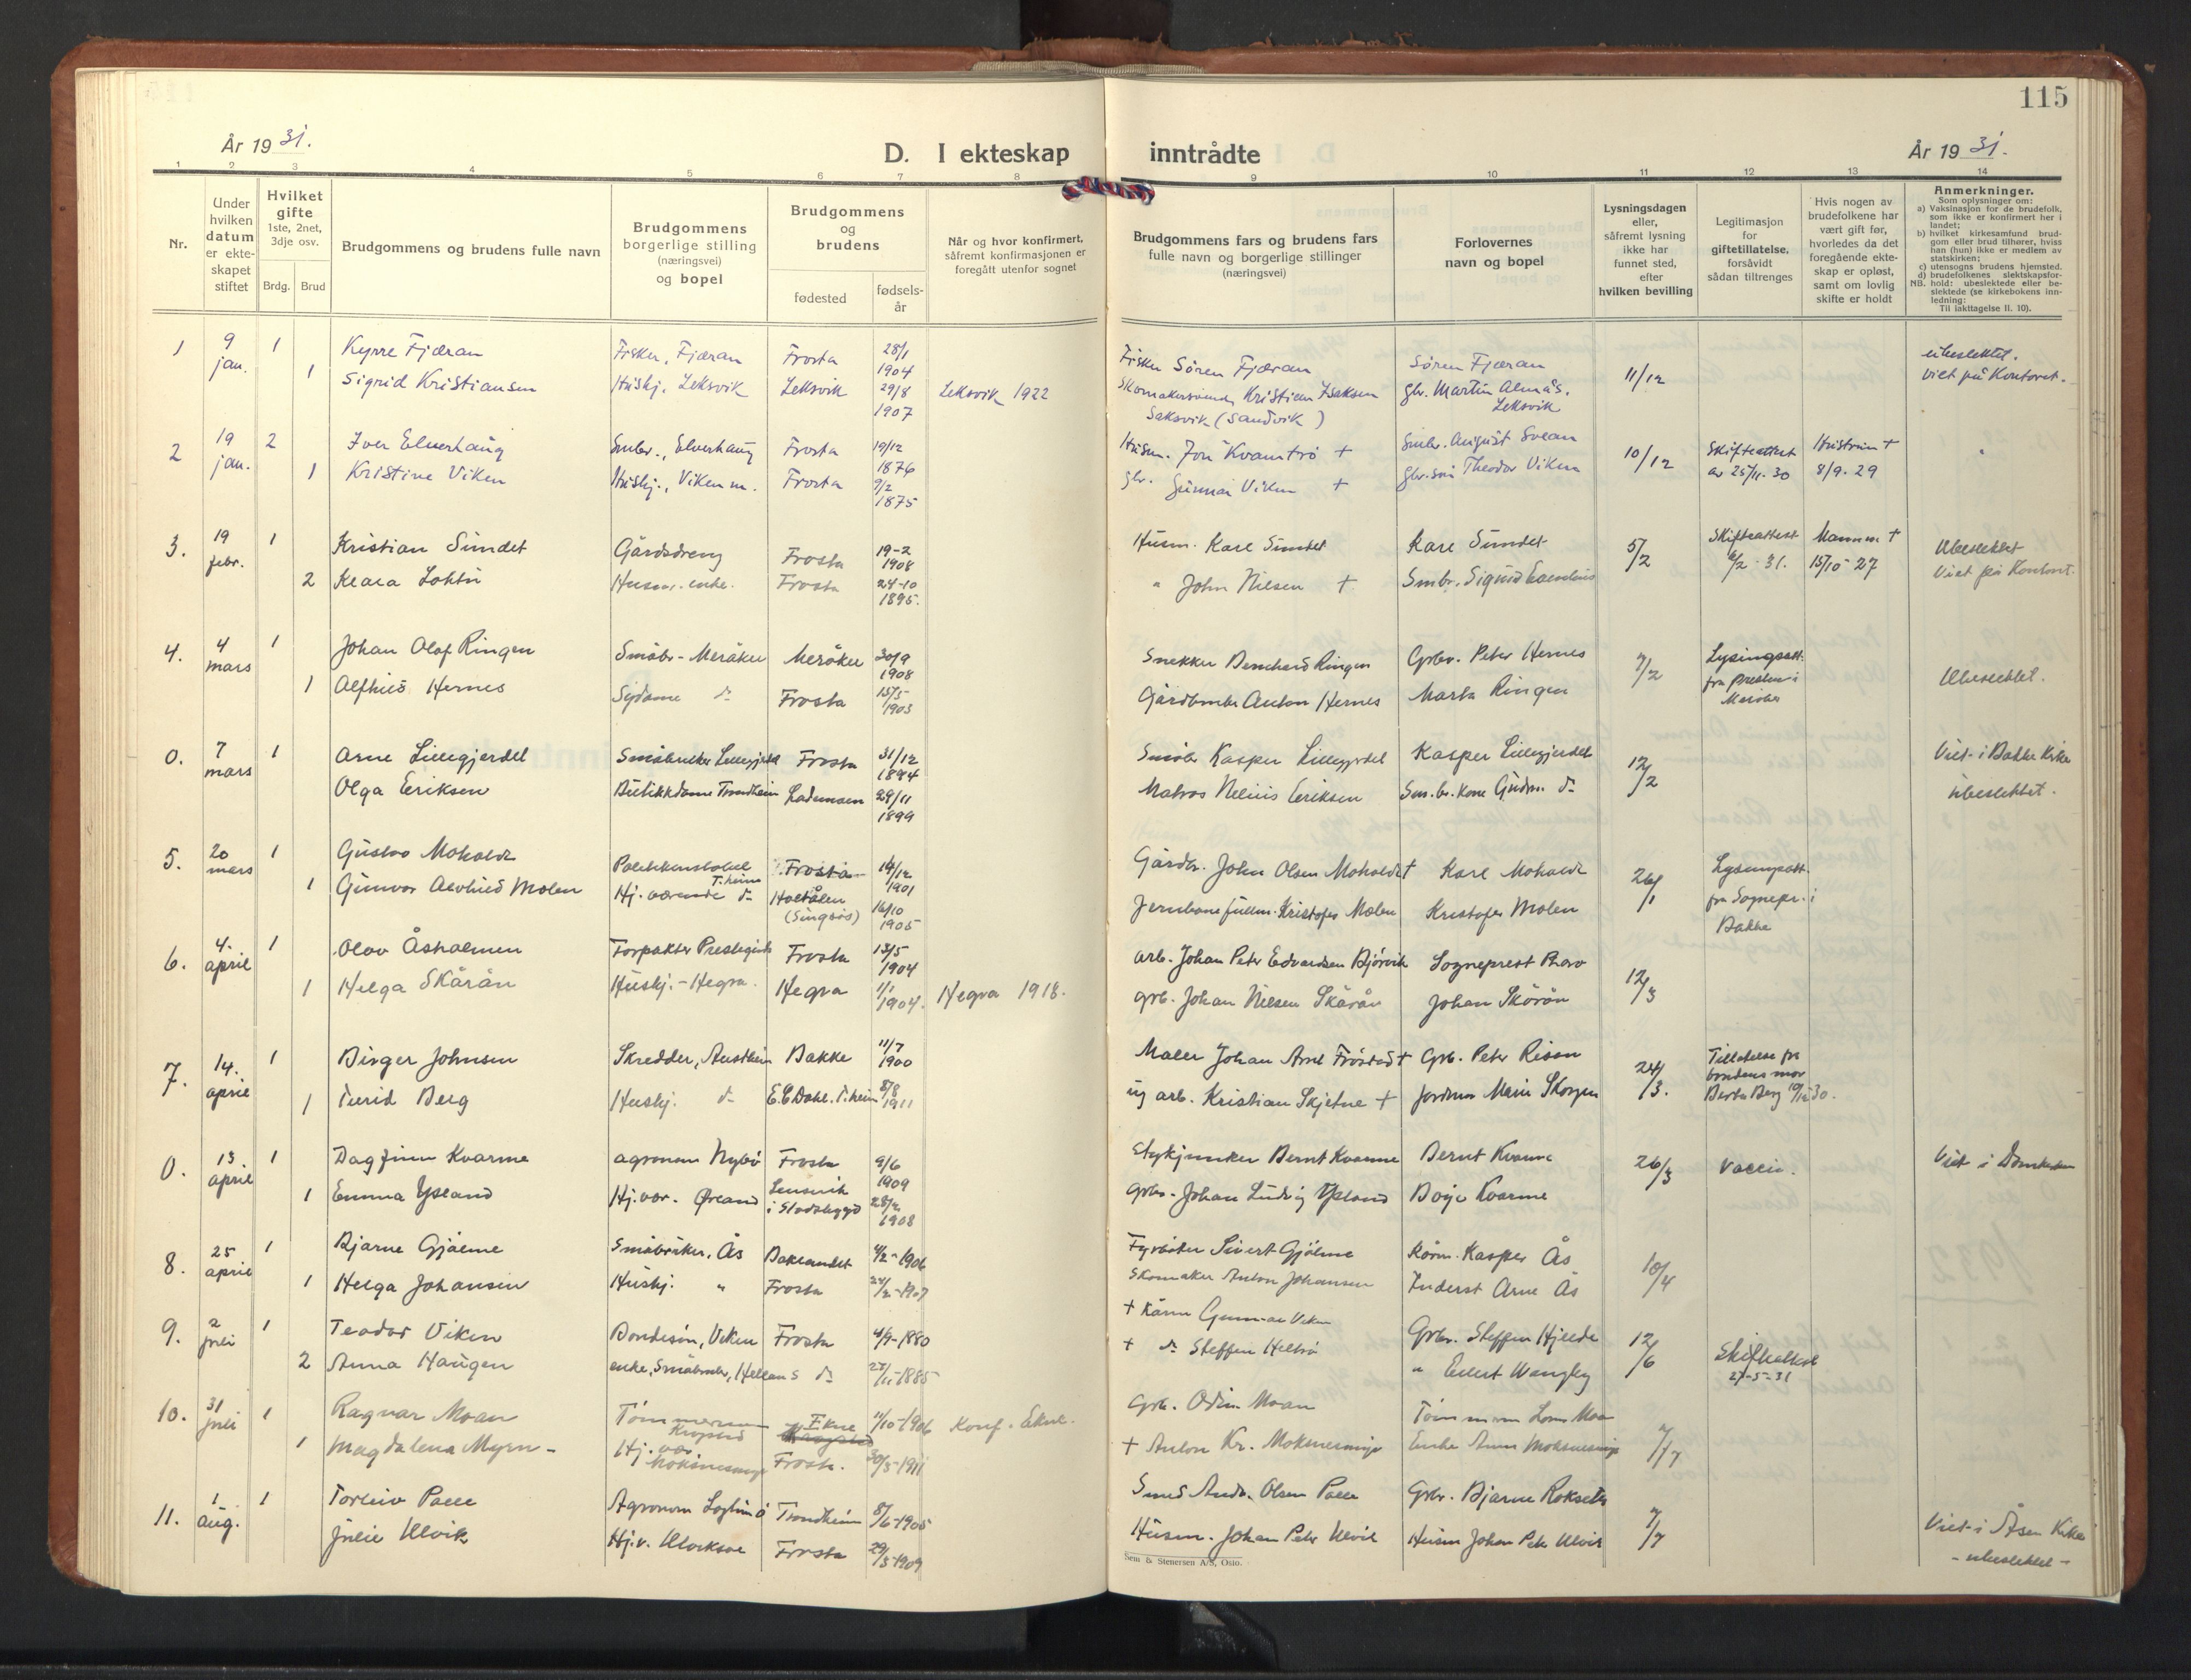 115
År 1931.
D. I ekteskap inntrådte
År 1931.
1 2 3 4 5 6 7 8 9 10 11 12 13 14
Nr.
Under hvilken datum er ekteskapet stiftet
Hvilket gifte 1ste, 2net, 3dje osv.
Brdg. Brud
Brudgommens og brudens fulle navn
Brudgommens borgerlige stilling (næringsvei) og bopel
Brudgommens og brudens
fødested
fødselsår
Når og hvor konfirmert, såfremt konfirmasjonen er foregått utenfor sognet
Brudgommens fars og brudens fars fulle navn og borgerlige stillinger (næringsvei)
Forlovernes navn og bopel
Lysningsdagen eller, såfremt lysning ikke har funnet sted, efter hvilken bevilling
Legitimasjon for giftetillatelse, forsåvidt sådan tiltrenges
Hvis nogen av brudefolkene har vært gift før, hvorledes da det foregående ekteskap er opløst, samt om lovlig skifte er holdt
Anmerkninger.
Som oplysninger om:
a) Vaksinasjon for de brudefolk, som ikke er konfirmert her i landet;
b) hvilket kirkesamfund brudgom eller brud tilhører, hviss han (hun) ikke er medlem av statskirken;
c) utensogns brudens hjemsted.
d) brudefolkenes slektskapsforhold: ubeslektede eller beslektede (se kirkebokens innledning:
NB.
Til iakttagelse II. 10).
1 9 jan. 1 Kyrre Fjæran Fisker, Fjæran Frosta 28/1 1904 Fisker Sören Fjæran Sören Fjæran 11/12 ubeslektet.
1 Sigrid Kristiansen Hushj. Leksvik Leksvik 29/8 1907 Leksvik 1922 Kristian Isaksen gbr. Martin Almås, Leksvik viet på Kontoret.
Saksvik (Sandvik)
2 19 jan. 2 Iver Elverhaug Smbr., Elverhaug Frosta 19/12 1876 Husm. Jon Kvamtrø + Smbr. August Svean 10/12 Skifteattest av 25/11-30 Hustruen + 8/9-29 "
1 Kristine Viken Hushj., Viken m. Frosta 9/2 1875 gbr. Gunnar Viken + Theodor Viken
3. 19 febr. 1 Kristian Sundet Gårdsdreng Frosta 19-2 1908 Husm. Karl Sundet Karl Sundet 5/2 Skifteattest 6/2-31. Mannen + 15/10-27 Ubeslektet
2 Klara Lohtu Husm. enke. Frosta 24-10 1895. " John Nilsen + Smbr. Sigurd Viet på Kontoret.
4. 4 mars 1 Johan Olaf Ringen Småbr - Meråker Meråker 30/9 1908 Snekker Bernhard Ringen Grbr. Peter Hernes 7/2 Lysingsatt. fra presten i Meråker Ubeslektet.
1 Alfhild Hernes Sydame do Frosta 15/5 1903 Gårdbruker Anton Hernes Marta Ringen
0. 7 mars 1 Arne Lillegjerdet Småbruker Lillegjerdet Frosta 31/12 1894 Småbr Kasper Lillegjerdet Kasper Lillegjerdet 12/2 Viet i Bakke Kirke
Olga Eriksen Butikkdame Trondheim Lademoen 29/11 1899 Matros Nelius Eriksen Sm.br. Kone Gudm. do ubeslektet.
5. 20 mars 1 Gustav Moholdt Politikonstabel T.heim Frosta 14/12 1901 Gårdbr. John Olsen Moholdt + Karl Moholdt 26/1 Lysningsatt. fra Sognepr. i Bakke
1 Gunvor Alvhild Molen Hj. værende do Holtålen (Singsås) 16/10 1905 Jernbanefullm. Kristofer Molen Kristofer Molen
6. 4. april 1 Olav Åsholmen Forpakter Prestegården Frosta 13/5 1904 arb. Johan Peter Edvardsen Bjørvik Sogneprest Brovo 12/3
1 Helga Skårån Hushj. - Hegra. Hegra 1/1 1904. Hegra 1918. grb. Johan Nilsen Skårån Johan Skårån
7. 14. april 1 Birger Johnsen Skredder, Austheim Bakke 11/7 1900 Maler Johan Arnt Frøstad + Grb. Peter Risan 24/3. Tillatelse fra brudens mor Berta Berg 10/12 30.
1 Turid Berg Hushj. do E.C Dahl. T.heim 8/8 1911 ug arb. Kristian Skjetne + Jordmor Marie Skorpen
0. 13 april 1 Dagfinn Kvarme agronom Nybö Frosta 9/6 1909 Stykjunker Bernt Kvarme Bernt Kvarme 26/3 vaccin. Viet i Domkirken
1 Emma Ysland Hj.vær. Ørland Lensvik i Stadsbygd 28/2 1908 Grbr. Johan Ludvig Ysland Borje Kvarme
8. 25 april 1 Bjarne Gjölme Småbruker, Ås Baklandet 4/2-1906 Fyrbøter Sivert Gjölme Kårm. Kasper Ås 10/4
1 Helga Johansen Hushj. " Frosta 24/2-1907 Skomaker Anton Johansen Inderst Arne Ås
9. 2 juli 1 Teodor Viken Bondesøn, Viken Frosta 4/9-1880 + Kårm Gunnar Viken Grbr. Steffen Hjelde 12/6 Skifteattest 27-5-31
2 Anna Haugen enke, Småbruker, Hellan S do 27/11-1885 + do Steffen Heltrø " Eilert Wangby
10. 31 juli 1 Ragnar Moan Tömmermann Ekne 11/10-1906 Konf. Ekne. Grb. Odin Moan Tömmerm Moan 7/7
1 Magdalena Myrn- Hj. vær. Frosta. 30/5-1911 + Anton Kr. Moksnesmyr Enke Anna Moksnesmyr
11. 1 aug. 1 Torleiv Palle Agronom Trondheim 8/6-1905 Smed Andr. Olsen Palle Grbr. Bjarne Rokseth 7/7 Viet i Åsen Kirke
Julie Ulvik Hj.v. Frosta 29/3-1909 Husm. Johan Peter Ulvik Husm Johan Peter Ulvik - ubeslektet -
Sem & Stenersen A/S, Oslo.